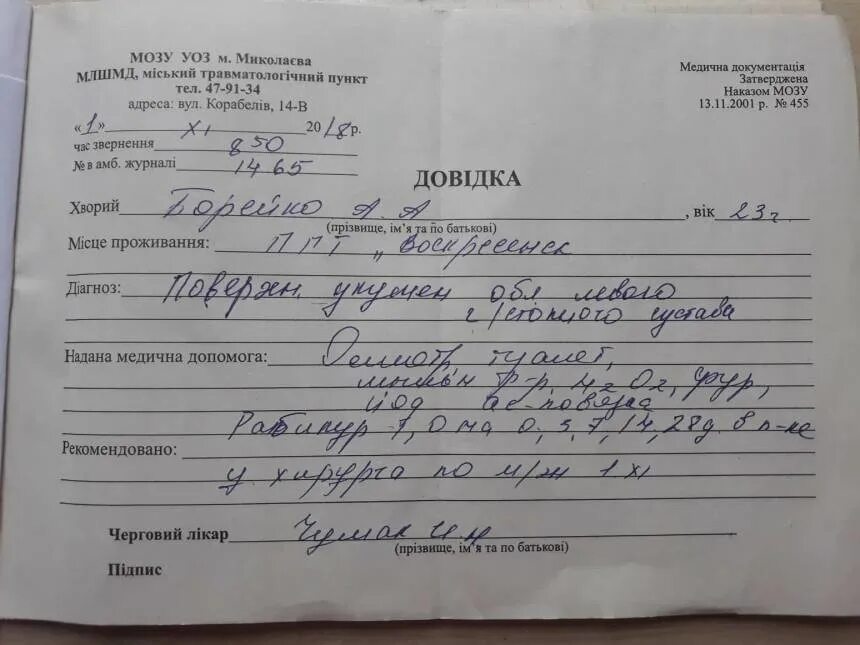 МОЗУ УОЗ м. Миколаєва
МЛШМД, міський травматологічний пункт
тел. 47-91-34
адреса: вул. Корабелів, 14-В
Медична документація
Затверджена
Наказом МОЗУ
13.11.2001 р. № 455
«1» XI 2018р.
час звернення 850
№ в амб. журналі 1465
ДОВІДКА
Хворий Борейко А. А , вік 23 г
(прізвище, ім'я та по батькові)
Місце проживання: ППТ „ Воскресенск
Діагноз: Поверхн. укушен обл левого
г/стопного сустава
Надана медична допомога: Осмотр, туалет,
мыльн р-р, H2O2, фур,
йод ас-повязка
Рабипур-1,0 на 0, 3, 7, 14, 28д. в п-ке
Рекомендовано:
у хирурга по м/ж 1 XI
Черговий лікар Чумак И.Н
(прізвище, ім'я та по батькові)
Підпис